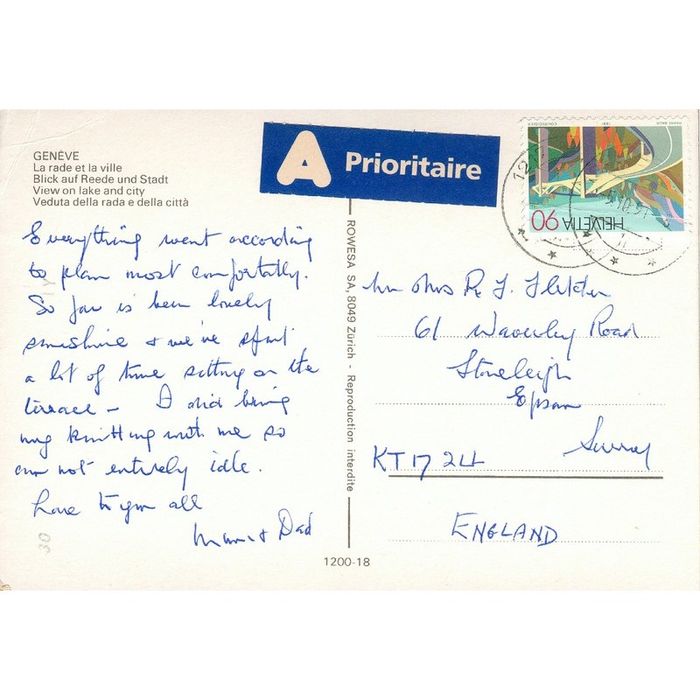 GENÈVE
La rade et la ville
Blick auf Reede und Stadt
View on lake and city
Veduta della rada e della città
A Prioritaire
HELVETIA 90
Everything went according
to plan most comfortably.
So far is been lovely
sunshine & we've spent
a lot of time sitting on the
terrace – I did bring
my knitting with me so
am not entirely idle.
Love to you all
Mum & Dad
ROWESA SA, 8049 Zürich - Reproduction interdite
Mr Mrs R. J. Fletcher
61 Waverley Road
Stoneleigh
Epsom
Surrey
KT17 2LL
ENGLAND
1200-18
30